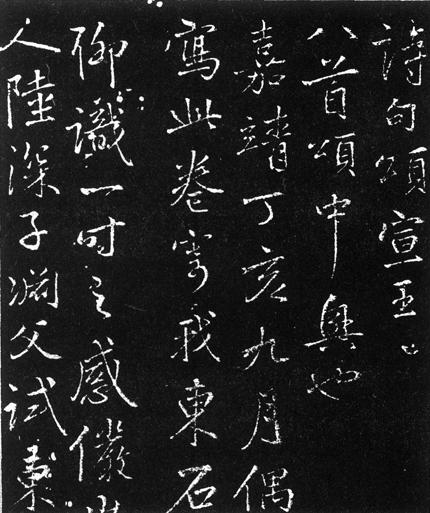 詩句頌宣王
八首頌中興也
嘉靖丁亥九月偶
寫此卷寄我東石
聊識一時之感儼山
人陸深子淵父試